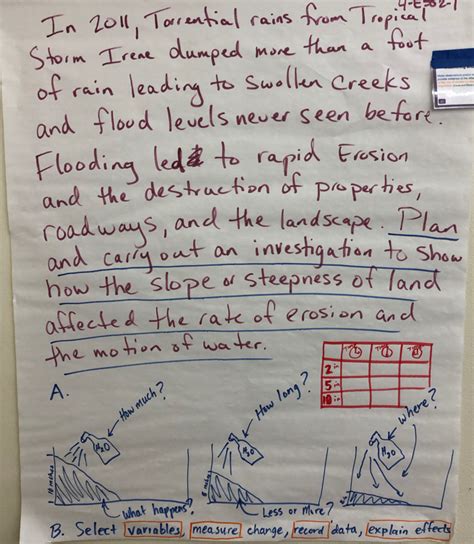 4-ESS2-1
In 2011, Torrential rains from Tropical
Storm Irene dumped more than a foot
of rain leading to swollen creeks
and flood levels never seen before.
Flooding led to rapid Erosion
and the destruction of properties,
roadways, and the landscape. Plan
and carry out an investigation to show
how the slope or steepness of land
affected the rate of erosion and
the motion of water.
2 in
5 in
10 in
A.
How much?
How long?
where?
H2O
H2O
H2O
10 inches
5 inches
What happens?
Less or More?
B. Select variables, measure change, record data, explain effects